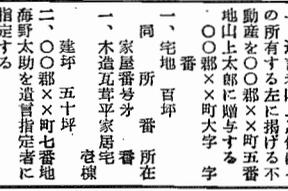 の所有する左に掲げる不
動産を〇〇郡××町五番
地山上太郎に贈与する
〇〇郡××町大字　字
番
一、宅地　百坪
同所　番所在
家屋番号才　番
一、木造瓦葺平家居宅　壱棟
建坪　五十坪
二、〇〇郡××町七番地
海野太助を遺言指定者に
指定する